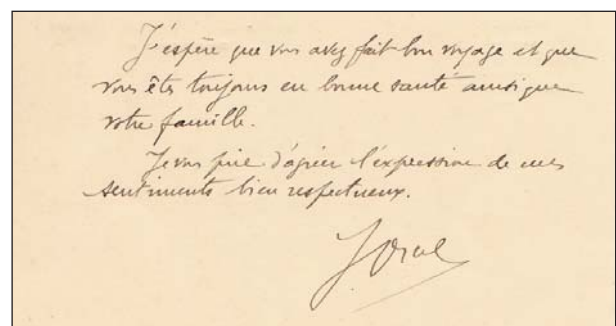 J'espère que vous avez fait bon voyage et que
vous êtes toujours en bonne santé ainsi que
votre famille.
Je vous prie d'agréer l'expression de mes
sentiments bien respectueux.